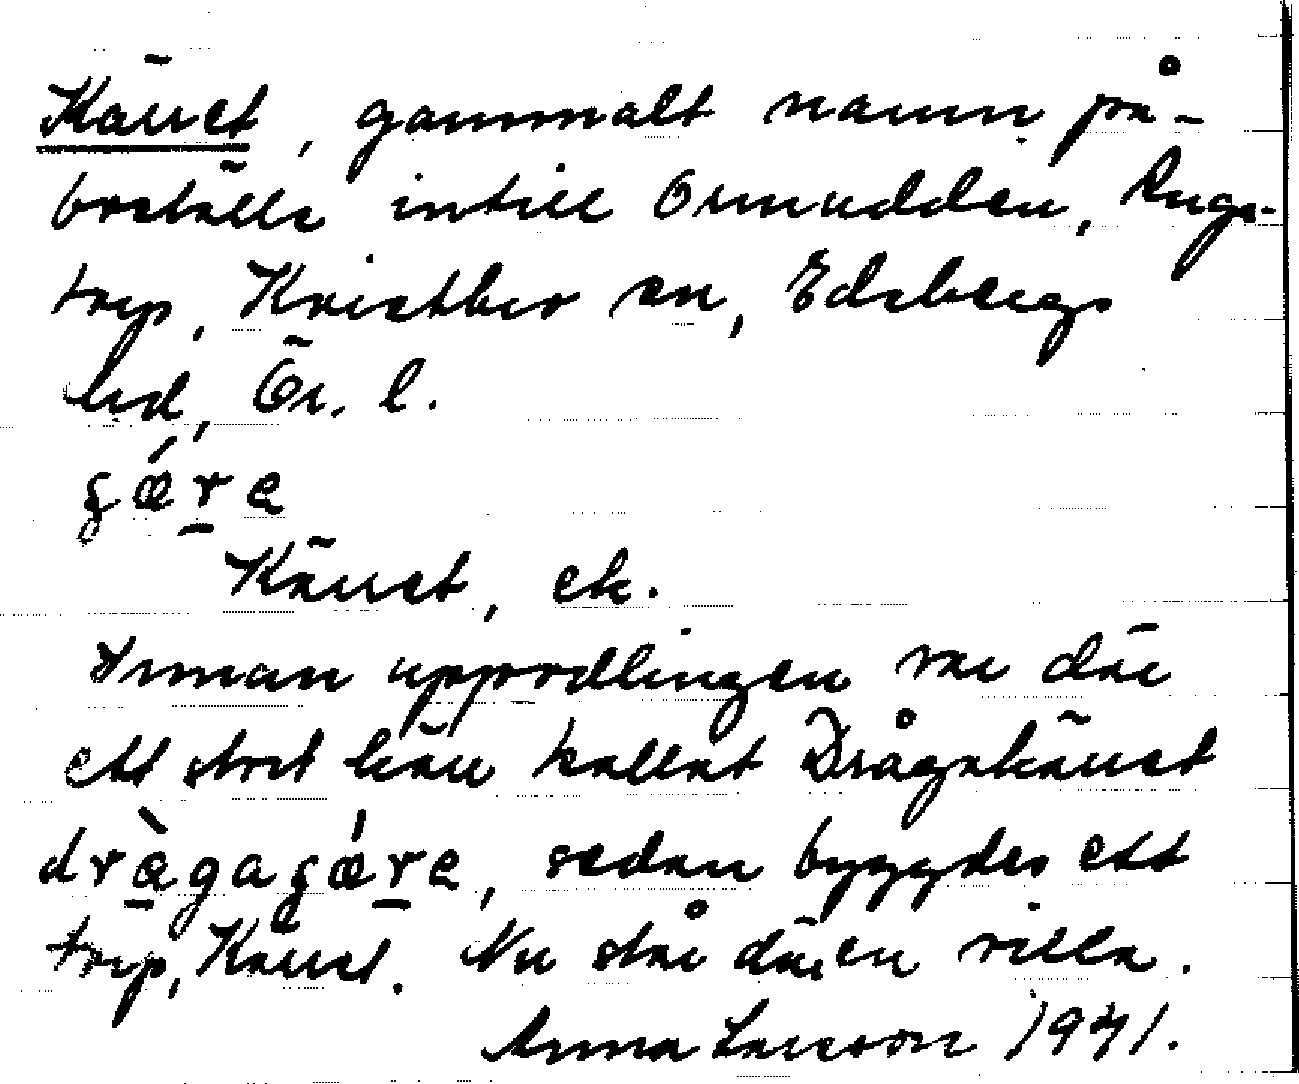 Kärret, gammalt namn på-
boställe intill Ormudden,
torp, Kvistbro sn, Edsbergs
hd, Ör. l.
ʃǽr̠e
Kärret, ek.
Innan uppodlingen var där
ett stort kärr kallat Drågakärret
drà̠gaʃǽr̠e, sedan byggdes ett
torp, Kärret. Nu står där en villa.
Anna Larsson 1941.